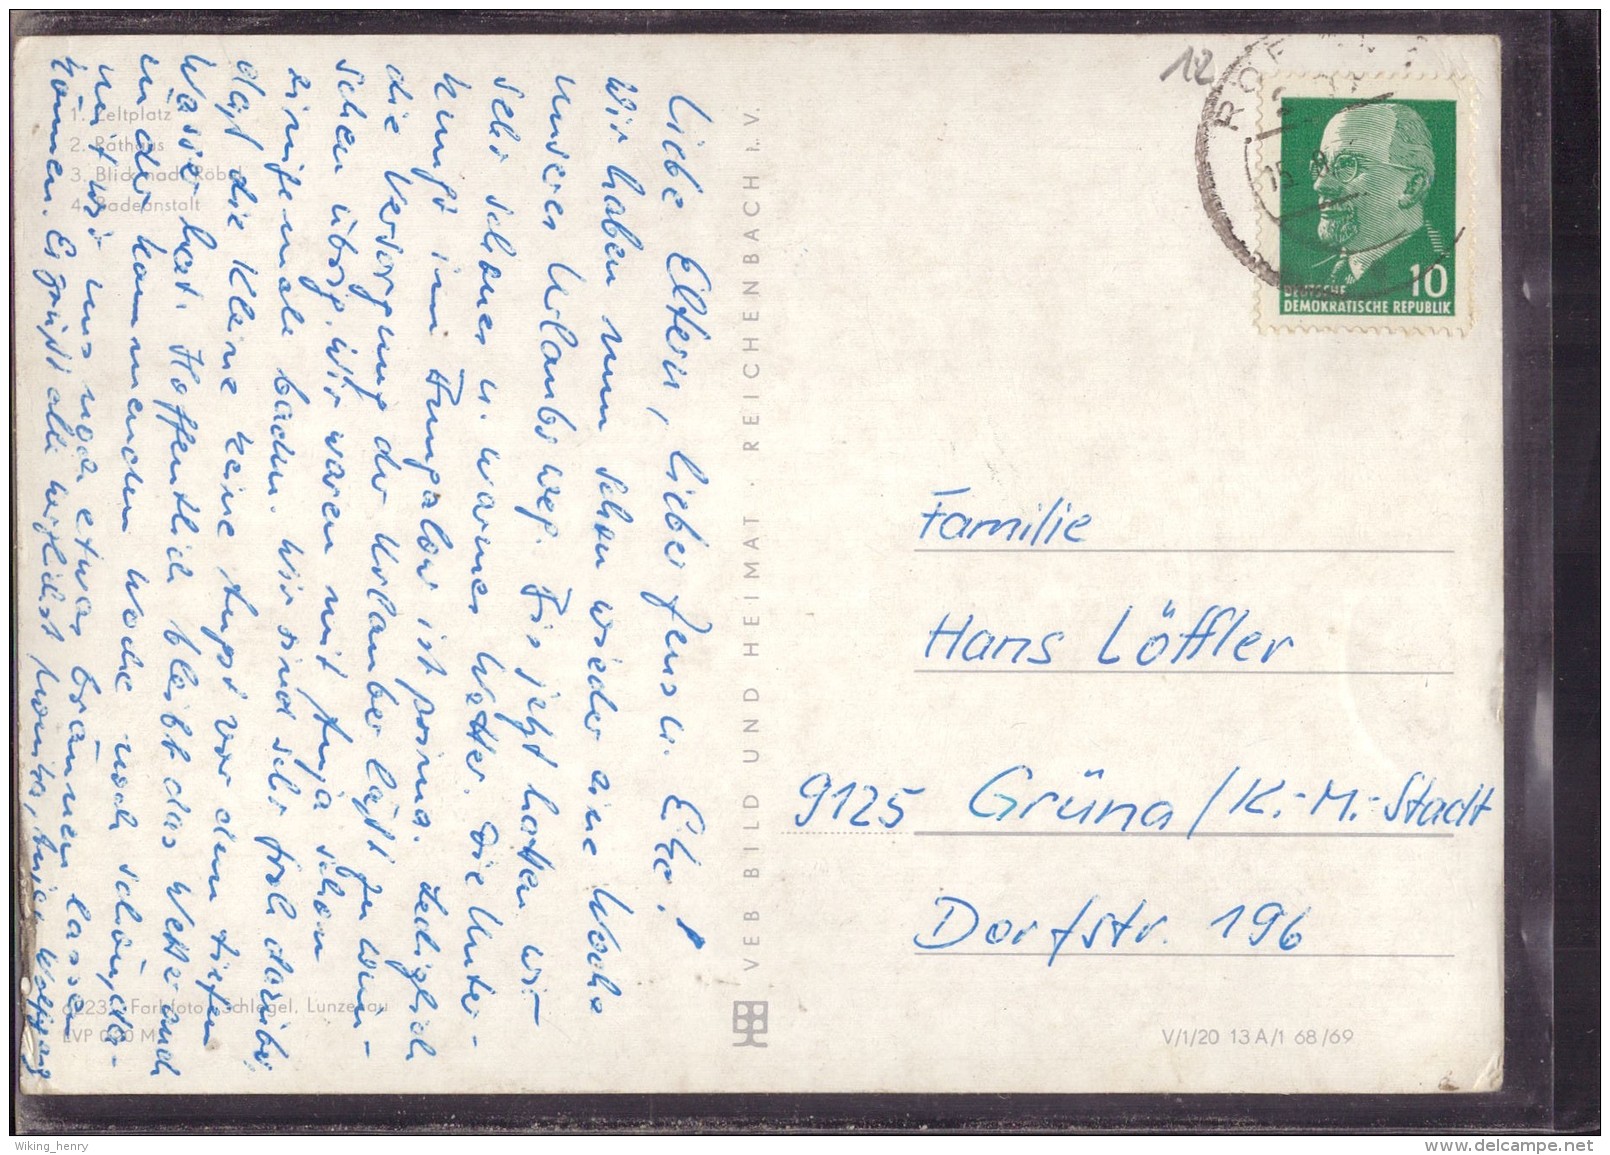 1. Zeltplatz
2. Rathaus
3. Blick nach Röbel
4. Badeanstalt
Liebe Eltern, lieber Jens u. Eke!
Wir haben nun schon wieder eine Woche
unseres Urlaubs weg. Bis jetzt hatten wir
sehr schönes u. warmes Wetter. Die Unter-
kunft im Bungalow ist prima. Lediglich
die Versorgung der Urlauber läßt zu wün-
schen übrig. Wir waren mit Anja schon
einigemale baden. Wir sind sehr froh darüber,
daß die Kleine keine Angst vor dem tiefen
Wasser hat. Hoffentlich bleibt das Wetter auch
in der kommenden Woche noch schön, da-
mit wir uns noch etwas bräunen lassen
können. Es grüßt alle herzlichst Monika, Anja u. Wolfgang
Farbfoto Schlegel, Lunzenau
EVP 0,20 M
VEB BILD UND HEIMAT · REICHENBACH I. V.
12
10
DEUTSCHE
DEMOKRATISCHE REPUBLIK
Familie
Hans Löffler
9125 Grüna / K.-M.-Stadt
Dorfstr. 196
V/1/20 13 A/1 68/69
Wiking_henry
www.delcampe.net